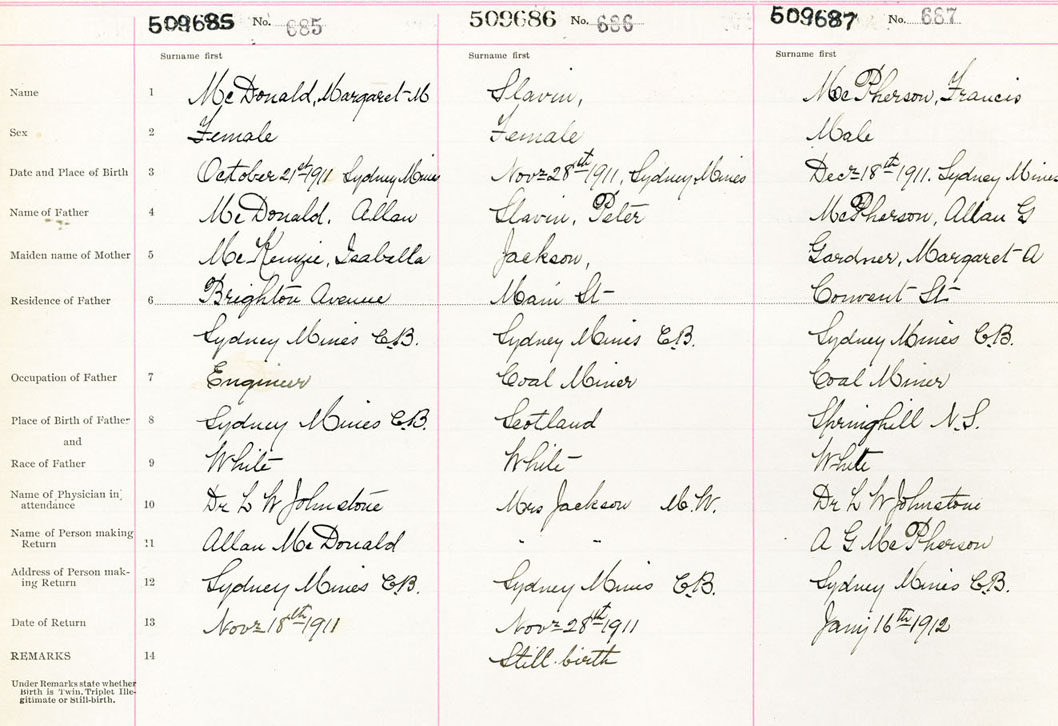 509685 No. 685 509686 No. 686 509687 No. 687
Surname first Surname first Surname first
Name 1 McDonald, Margaret M Slavin, McPherson, Francis
Sex 2 Female Female Male
Date and Place of Birth 3 October 21st 1911 Sydney Mines Novr 28th 1911, Sydney Mines Decr 18th 1911. Sydney Mines
Name of Father 4 McDonald, Allan Slavin, Peter McPherson, Allan G
Maiden name of Mother 5 McKenzie, Isabella Jackson, Gardner, Margaret A
Residence of Father 6 Brighton Avenue Main St Convent St
Sydney Mines C.B. Sydney Mines C.B. Sydney Mines C.B.
Occupation of Father 7 Engineer Coal Miner Coal Miner
Place of Birth of Father 8 Sydney Mines C.B. Scotland Springhill N.S.
and
Race of Father 9 White White White
Name of Physician in
attendance 10 Dr L W Johnstone Mrs Jackson M.W. Dr L W Johnstone
Name of Person making
Return 11 Allan McDonald " " A G McPherson
Address of Person mak-
ing Return 12 Sydney Mines C.B. Sydney Mines C.B. Sydney Mines C.B.
Date of Return 13 Novr 18th 1911 Novr 28th 1911 Jany 16th 1912
REMARKS 14 Still birth
Under Remarks state whether
Birth is Twin, Triplet Ille-
gitimate or Still-birth.